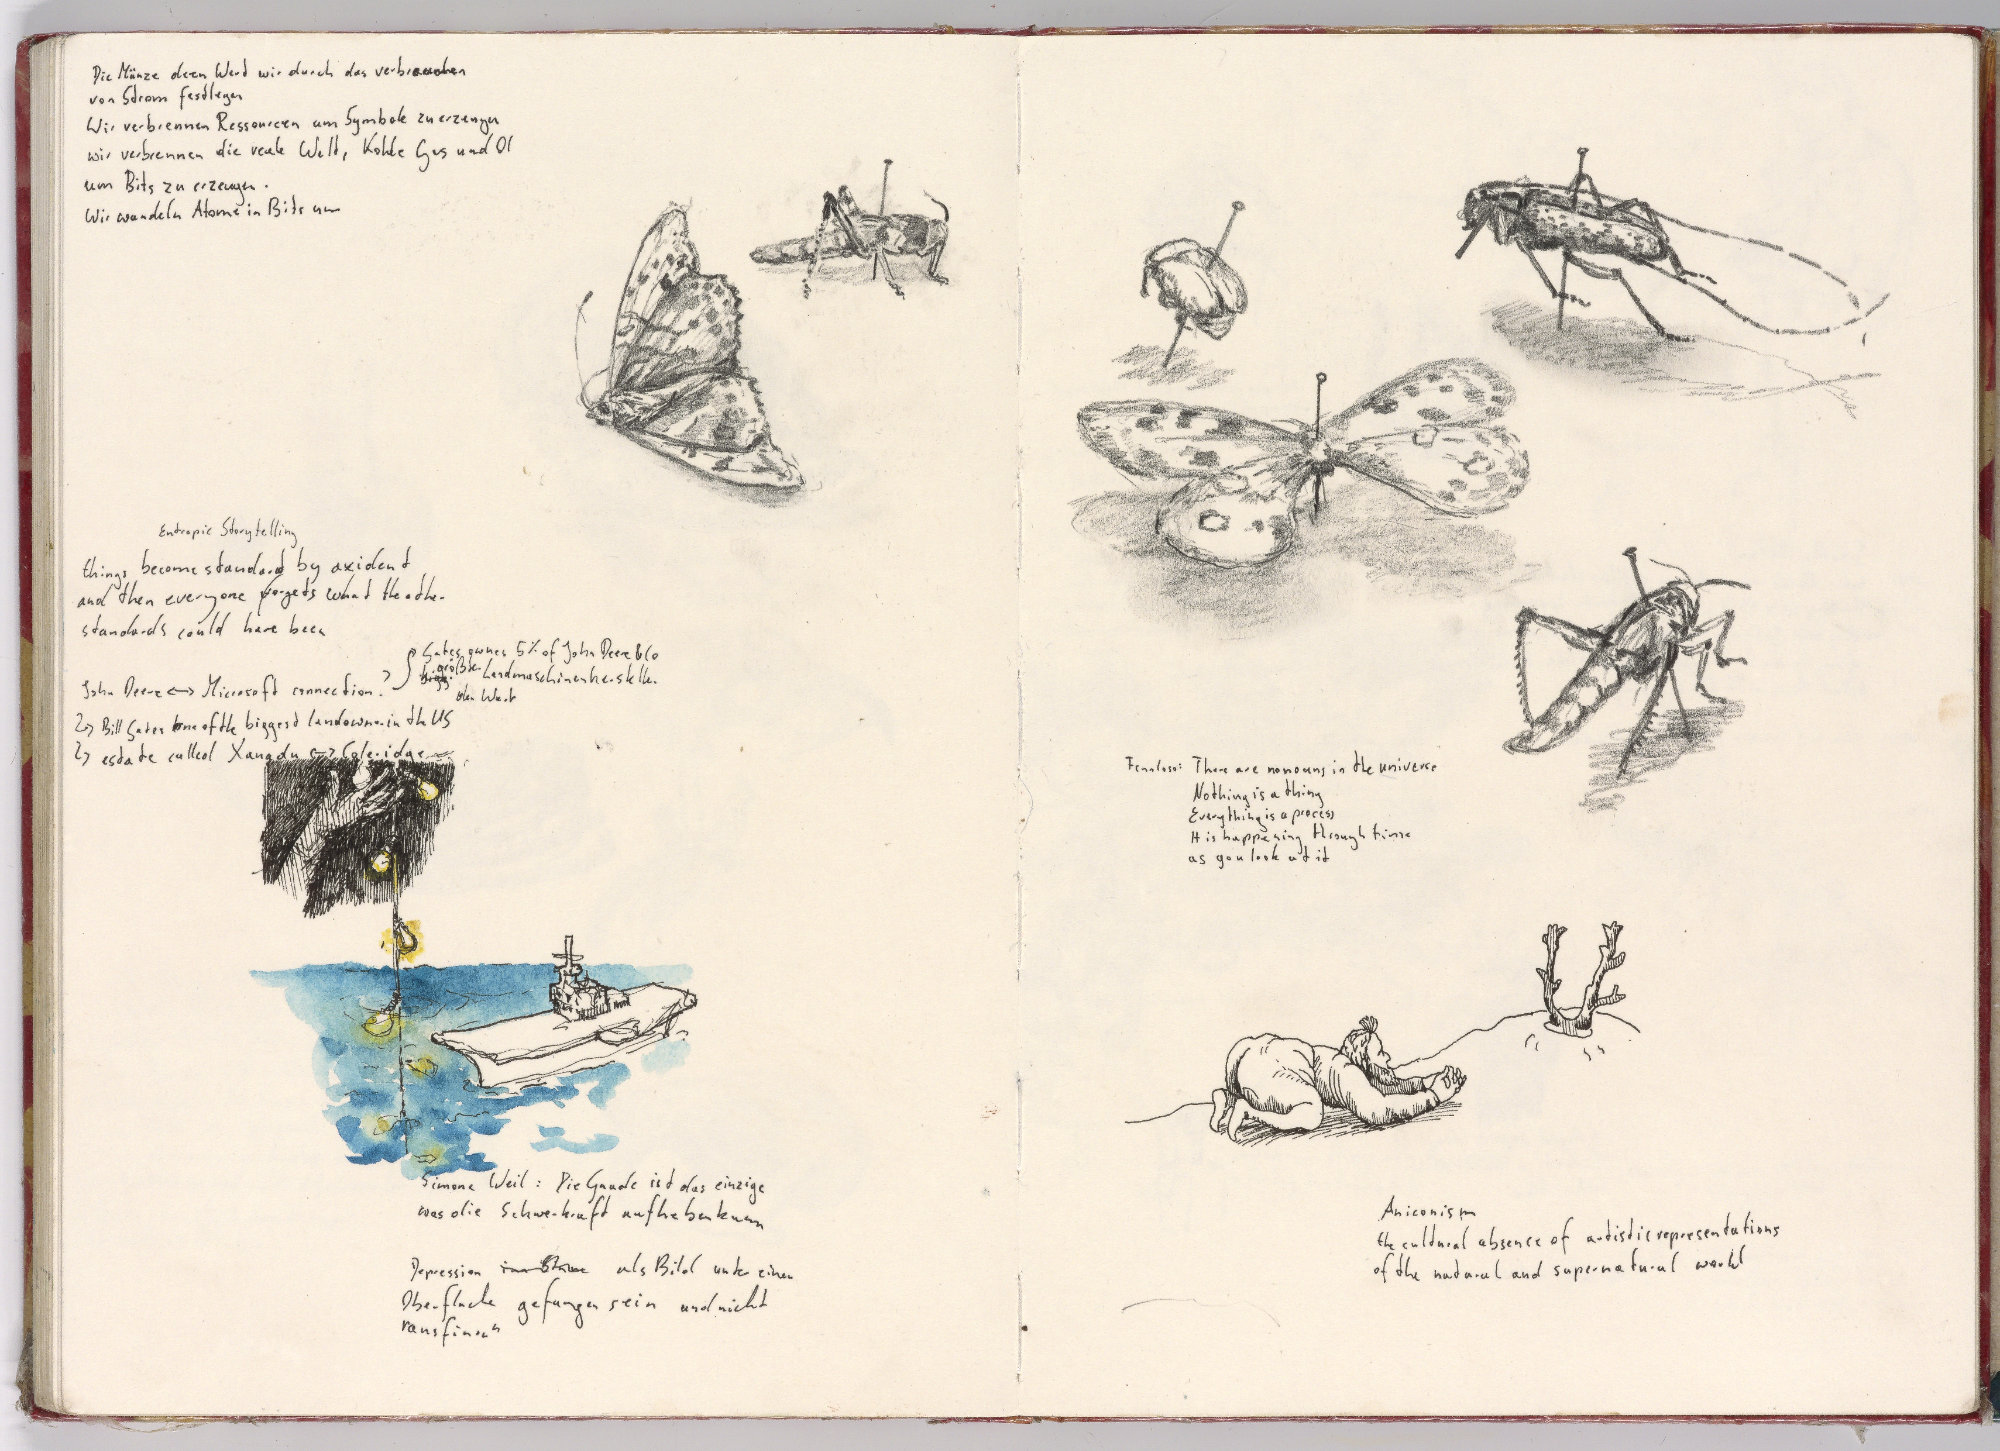 Die Münze deren Wert wir durch das verbrauchen
von Strom festlegen
Wir verbrennen Ressourcen um Symbole zu erzeugen
wir verbrennen die reale Welt, Kohle Gas und Öl
um Bits zu erzeugen.
Wir wandeln Atome in Bits um
Entropic Storytelling
things become standard by axident
and then everyone forgets what the other
standards could have been
John Deere <-> Microsoft connection.
Gates ownes 5% of John Deere & Co
größter Landmaschinenhersteller
der Welt
Bill Gates one of the biggest landowner in the US
estate called Xanadu <-> Coleridge
Simone Weil: Die Gnade ist das einzige
was die Schwerkraft aufheben kann
Depression als Bild unter einer
Oberfläche gefangen sein und nicht
rausfinden
There are no nouns in the universe
Nothing is a thing
Everything is a process
It is happening through time
as you look at it
Aniconism
the cultural absence of artistic representations
of the natural and supernatural world